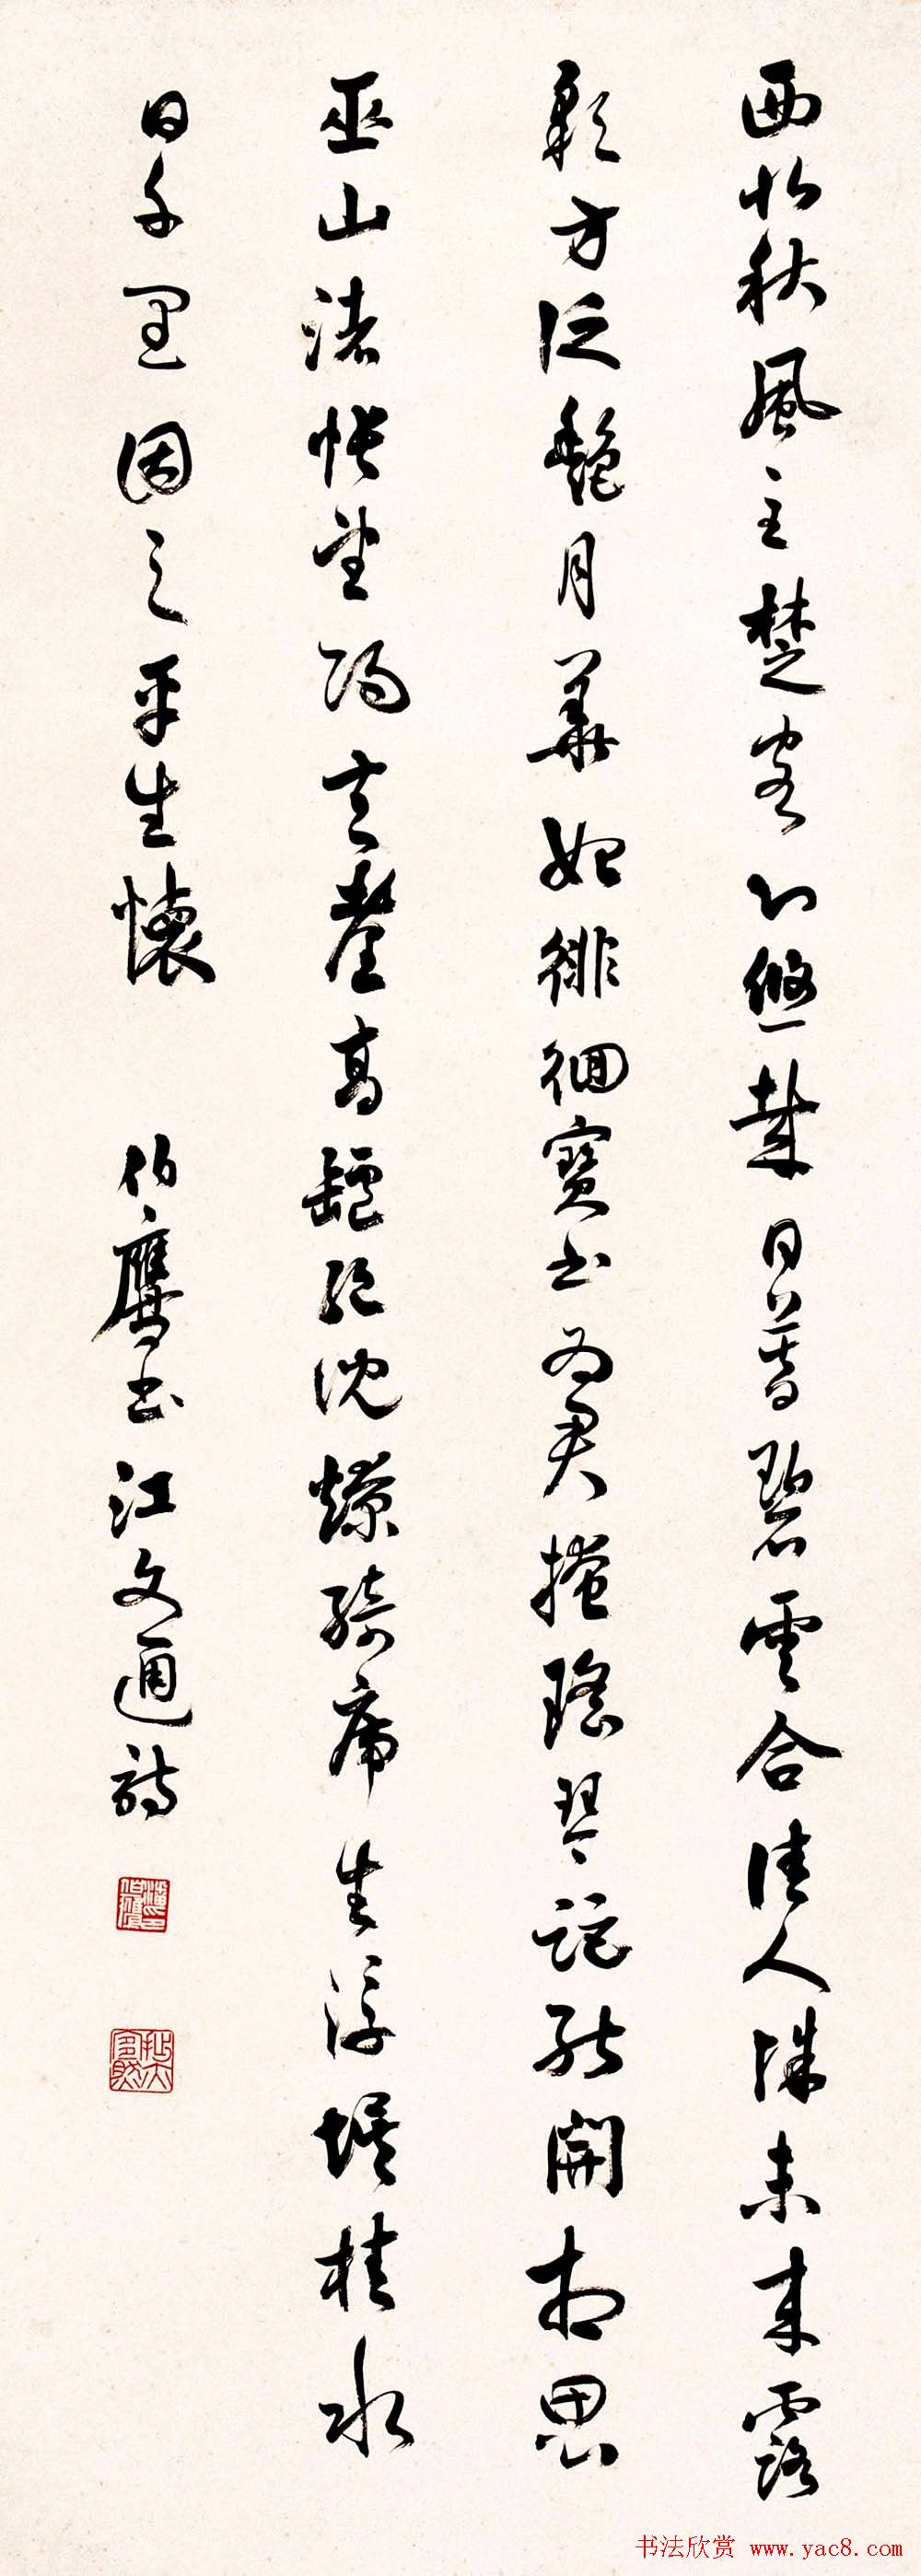 西北秋風至楚客心悠哉日暮碧雲合佳人殊未來露
彩方泛艷月華始徘徊寶書為君掩瑤琴詎能開相思
巫山渚悵望陽云臺高罏絕沈燎綺席生浮埃桂水
日千里因之平生懷 伯鷹書江文通詩
书法欣赏 www.yac8.com